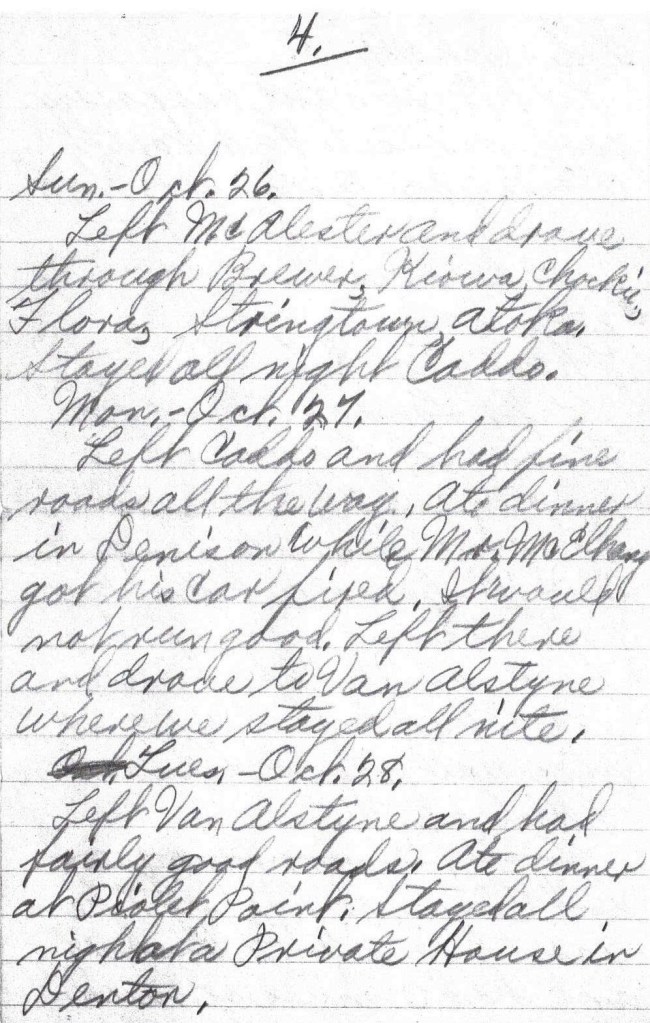 4.
Sun.-Oct. 26.
Left McAlester and drove
through Brewer, Kiowa, Chockie,
Flora, Stringtown, Atoka.
Stayed all night Caddo.
Mon.-Oct. 27.
Left Caddo and had fine
roads all the way. Ate dinner
in Denison while Mr. McElhany
got his car fixed. It would
not run good. Left there
and drove to Van Alstyne
where we stayed all nite.
Tues.-Oct. 28.
Left Van Alstyne and had
fairly good roads. Ate dinner
at Point. Stayed all
night at a Private House in
Denton.